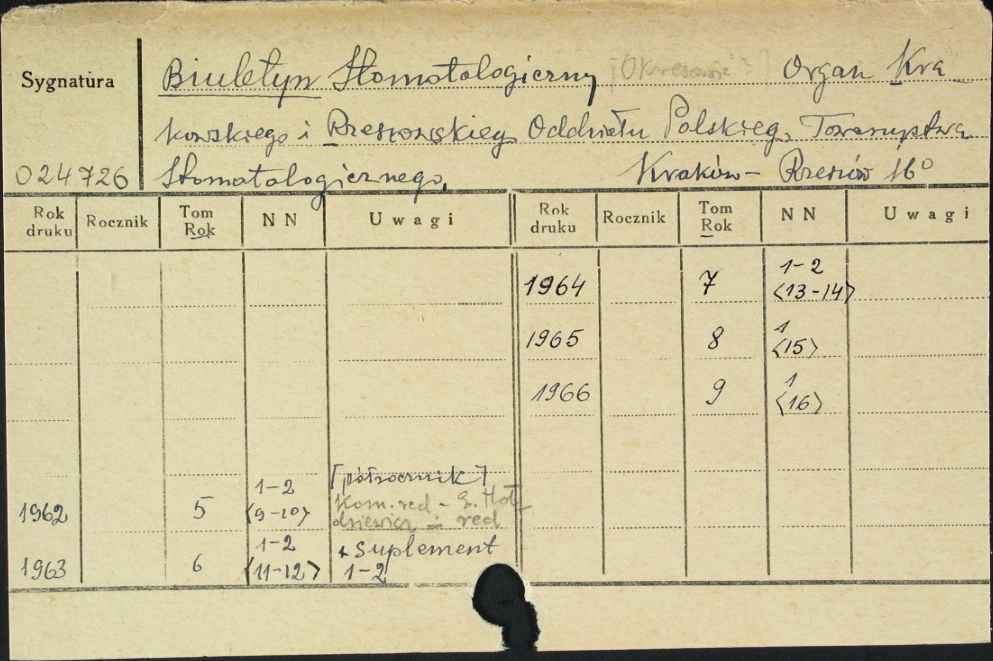 Sygnatura
Biuletyn Stomatologiczny [Okresowe?] Organ Kra-
kowskiego i Rzeszowskieg. Oddziału Polskieg. Towarzystwa
024726 Stomatologicznego. Kraków - Rzeszów 16°
Rok druku Rocznik Tom Rok NN Uwagi Rok druku Rocznik Tom Rok NN Uwagi
1964 7 1-2 <13-14>
1965 8 1 <15>
1966 9 1 <16>
1962 5 1-2 <9-10> [półrocznik] Kom. red -
red
1963 6 1-2 <11-12> + suplement 1-2